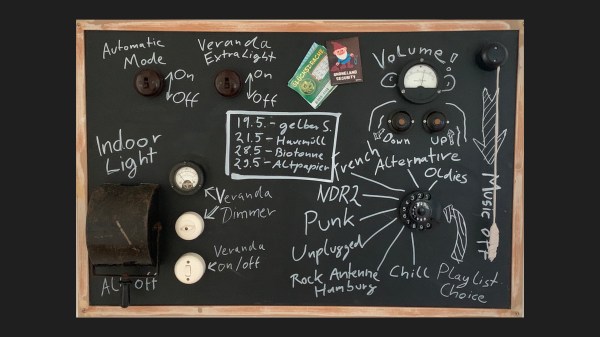 Automatic
Mode
On
Off
Veranda
Extra Light
On
Off
GNOMELAND
SECURITY
Volume!
Down
UP
19.5. - gelber S.
21.5 - Hausmüll
28.5 - Biotonne
29.5 - Altpapier
Indoor
Light
Veranda
Dimmer
Veranda
on/off
All off
French
Alternative
Oldies
NDR2
Punk
Unplugged
Rock Antenne
Hamburg
Chill
Playlist
Choice
Music off